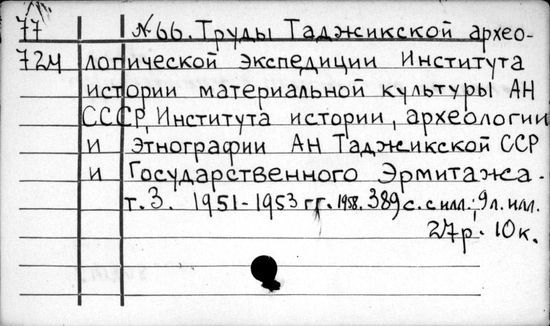 77 №66. Труды Таджикской архео-
724 логической экспедиции Института
истории материальной культуры АН
СССР, Института истории, археологии
и Этнографии АН Таджикской ССР
и Государственного Эрмитажа.
т. 3. 1951-1953 гг. 1958. 389 с. с илл.; 9 л. илл.
27р. 10к.